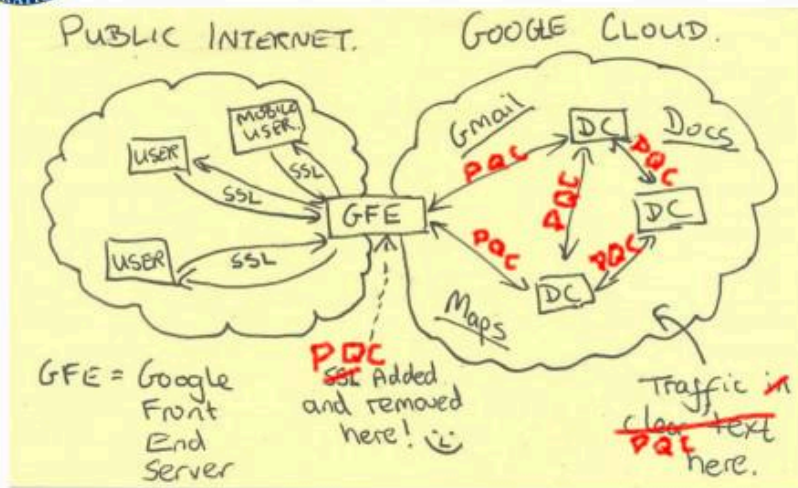 PUBLIC INTERNET.
GOOGLE CLOUD.
MOBILE
USER.
USER
SSL
SSL
GFE
USER
SSL
Gmail
DC
Docs
PQC
PQC
PQC
DC
PQC
PQC
DC
Maps
GFE = Google
Front
End
Server
PQC
SSL Added
and removed
here!
Traffic in
clear text
PQC
here.